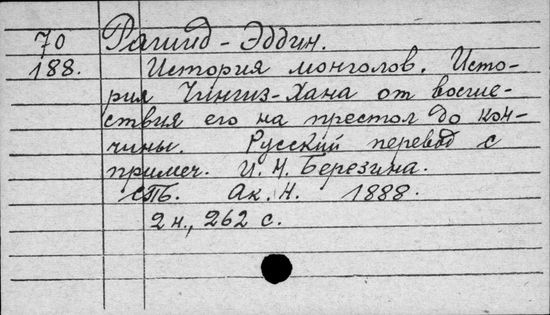 70 Рашид-Эддин.
188. История монголов. Исто-
рия Чингиз-Хана от восше-
ствия его на престол до кон-
чины. Русский перевод с
примеч. И. Н. Березина.
СПБ. Ак. Н. 1888.
2 н., 262 с.